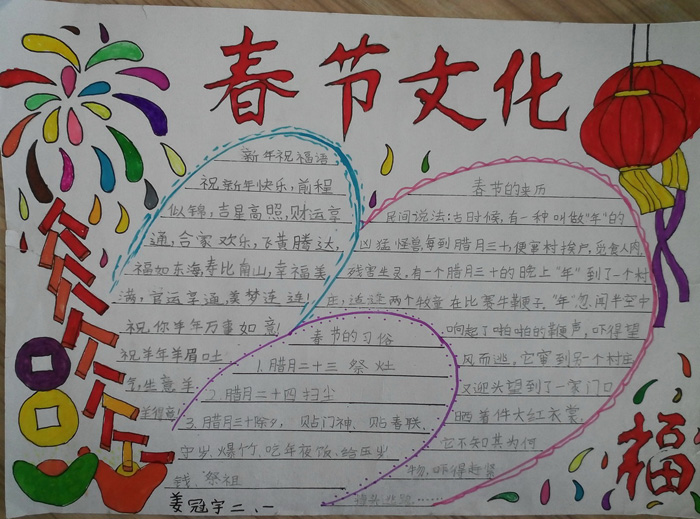 春节文化
新年祝福语
祝你新年快乐，前程
似锦，吉星高照，财运亨
通，合家欢乐，飞黄腾达，
福如东海寿比南山，幸福美
满，官运亨通，美梦连连！
祝你羊年万事如意！
祝羊年羊眉吐
气，生意羊
羊得意！
春节的来历
民间说法：古时候，有一种叫做"年"的
凶猛怪兽，每到腊月三十，便窜村挨户，觅食人肉，
残害生灵，有一个腊月三十的晚上"年"到了一个村
庄，适逢两个牧童在比赛牛鞭子。"年"忽闻半空中
响起了啪啪的鞭声，吓得望
风而逃，它窜到另一个村庄
又迎头望到了一家门口
晒着件大红衣裳
它不知其为何
物，吓得赶紧
掉头逃跑……
春节的习俗
1.腊月二十三 祭灶
2.腊月二十四 扫尘
3.腊月三十除夕，贴门神、贴春联、
守岁、爆竹、吃年夜饭、给压岁
钱、祭祖
福
姜冠宇二、一